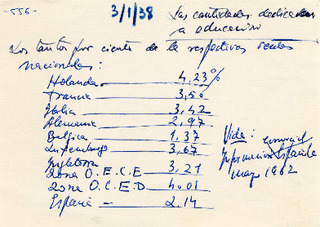 -556-
3/1/38
Las cantidades dedicadas
a educación
Los tantos por ciento de la respectivas rentas
nacionales:
Holanda 4,23%
Francia 3,56
Italia 3,42
Alemania 2,97
Belgica 1,37
Luxemburgo 3,67
Inglaterra
Zona O.E.C.E 3,21
Zona O.C.E.D 4,01
España - 2,14
Vide:
Información Española
mayo 1962